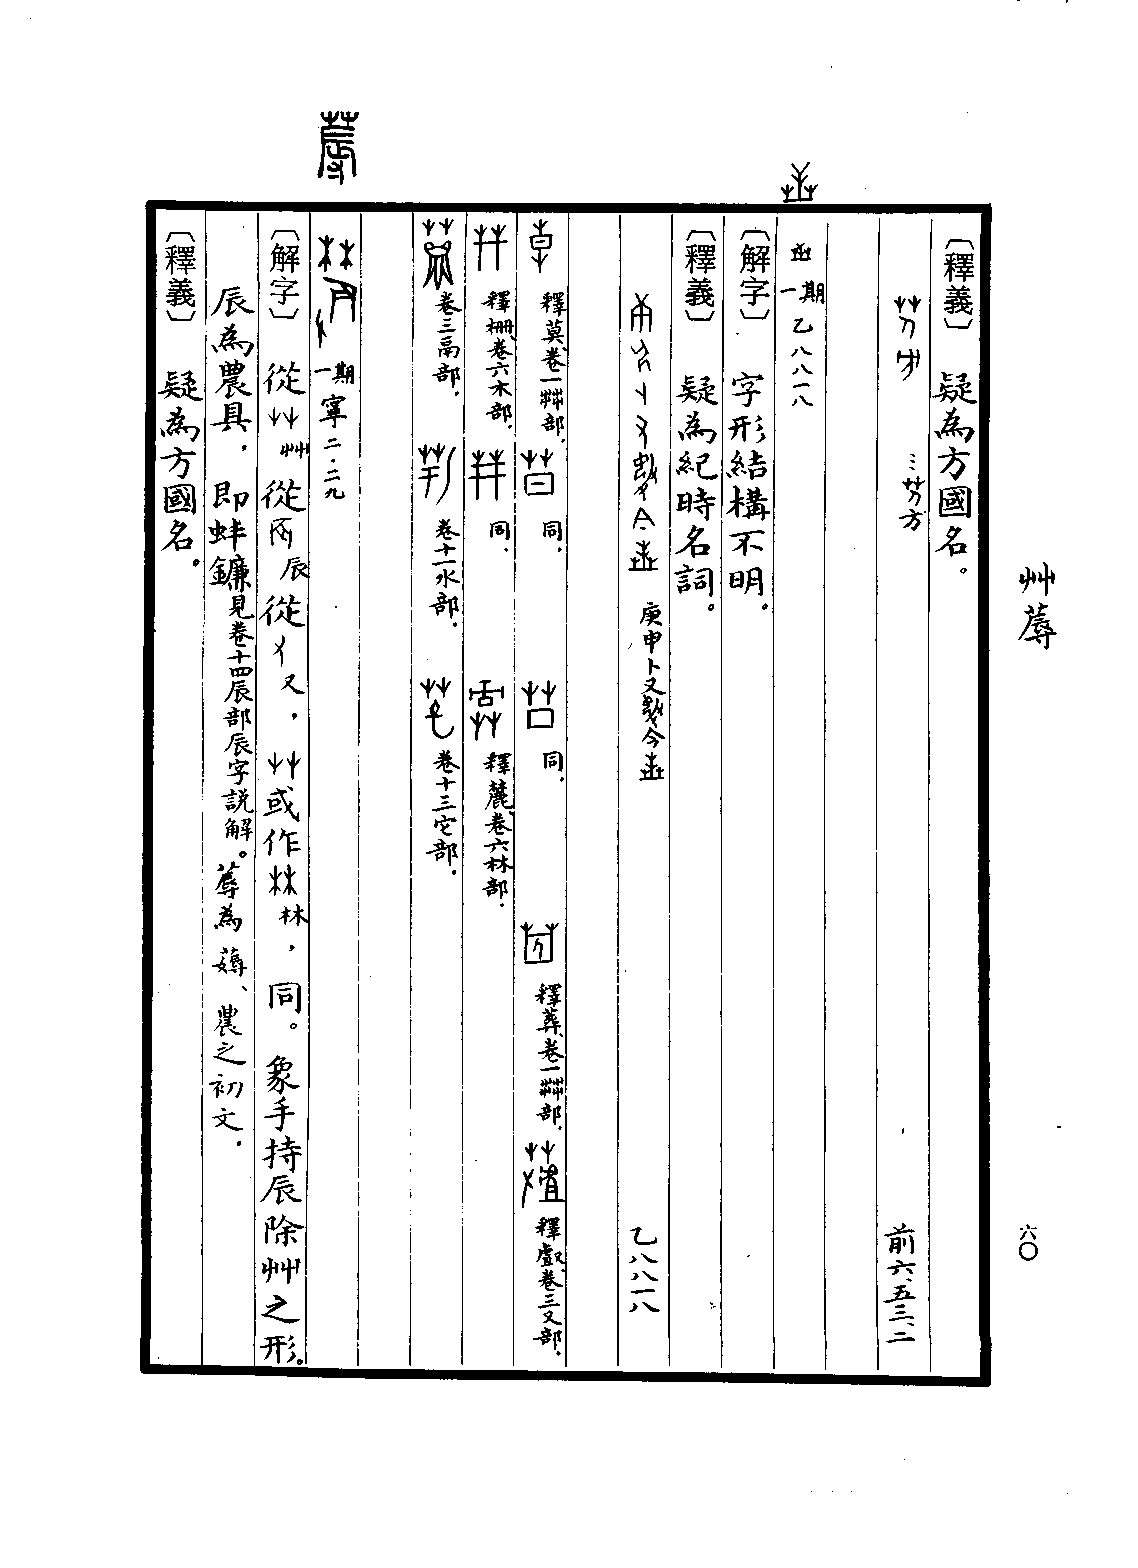 艸蓐
六〇
〔釋義〕 疑為方國名。
前六、五三、二
一期 乙八八一八
〔解字〕 字形結構不明。
〔釋義〕 疑為紀時名詞。
庚申卜又 今 乙八八一八
釋莫、卷一茻部. 同. 同. 釋葬、卷一茻部. 釋叡、卷三又部.
釋柵、卷六木部. 同. 釋麓、卷六林部.
卷三鬲部. 卷十一水部. 卷十三它部.
蓐
一期 寧二.二九
〔解字〕 從艸從辰從又，艸或作林，同。象手持辰除艸之形。
辰為農具，即蚌鐮見卷十四辰部辰字說解。蓐為薅、農之初文.
〔釋義〕 疑為方國名。